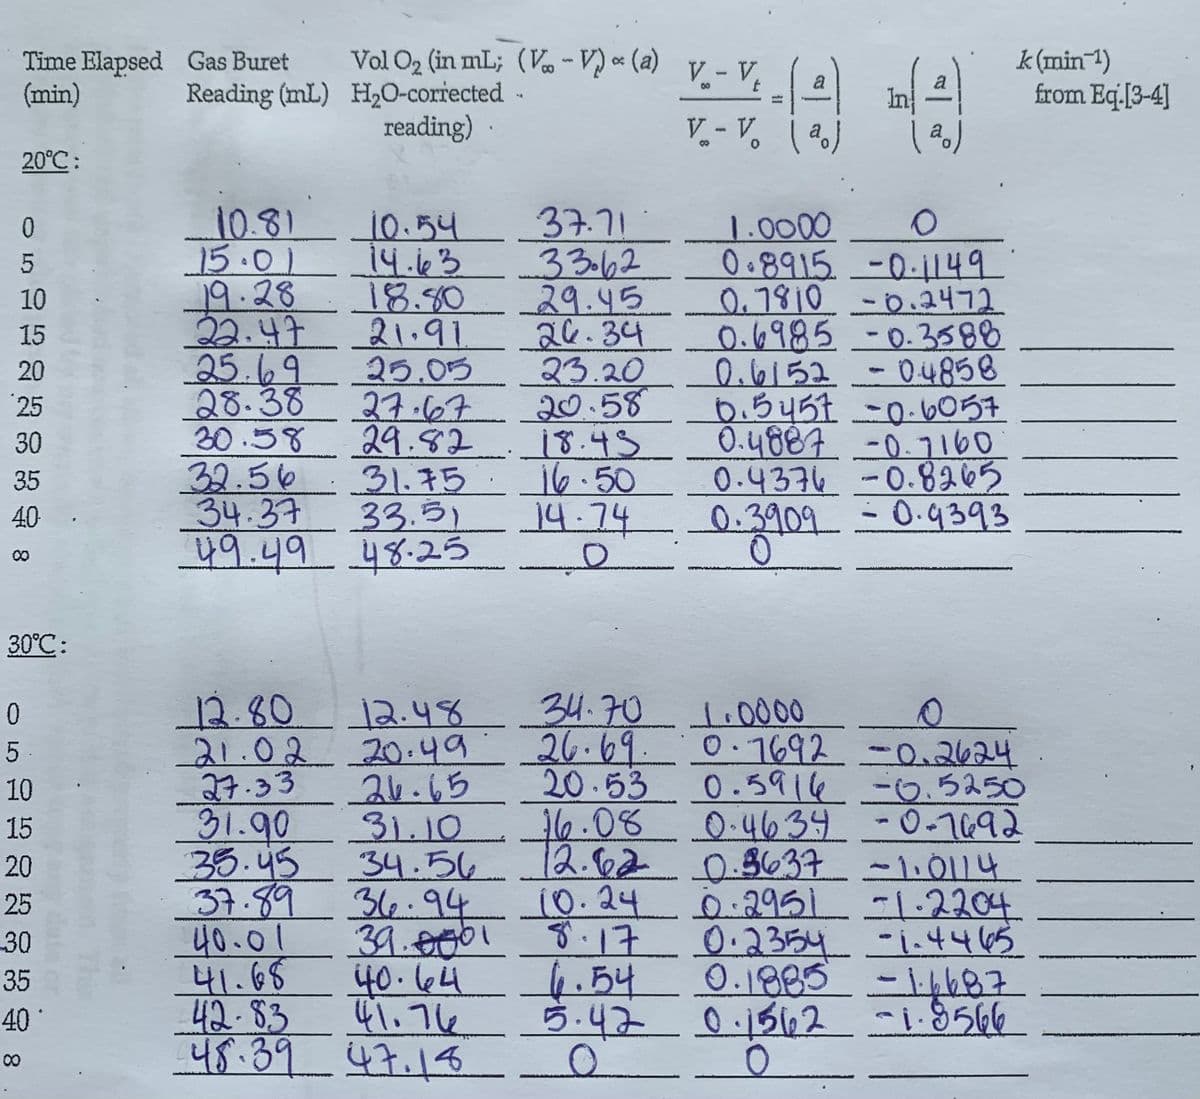 Time Elapsed Gas Buret Vol O₂ (in mL; (V∞ - Vₜ) ∝ (a) V∞ - Vₜ / V∞ - V₀ = (a / a₀) ln(a / a₀) k (min⁻¹)
(min) Reading (mL) H₂O-corrected from Eq.[3-4]
reading)
20°C:
0 10.81 10.54 37.71 1.0000 0
5 15.01 14.63 33.62 0.8915 -0.1149
10 19.28 18.80 29.45 0.7810 -0.2472
15 22.47 21.91 26.34 0.6985 -0.3588
20 25.69 25.05 23.20 0.6152 -0.4858
25 28.38 27.67 20.58 0.5457 -0.6057
30 30.58 29.82 18.43 0.4887 -0.7160
35 32.56 31.75 16.50 0.4376 -0.8265
40 34.37 33.51 14.74 0.3909 -0.9393
∞ 49.49 48.25 0 0
30°C:
0 12.80 12.48 34.70 1.0000 0
5 21.02 20.49 26.69 0.7692 -0.2624
10 27.33 26.65 20.53 0.5916 -0.5250
15 31.90 31.10 16.08 0.4634 -0.7692
20 35.45 34.56 12.62 0.3637 -1.0114
25 37.89 36.94 10.24 0.2951 -1.2204
30 40.01 39.01 8.17 0.2354 -1.4465
35 41.68 40.64 6.54 0.1885 -1.6687
40 42.83 41.76 5.42 0.1562 -1.8566
∞ 48.39 47.18 0 0